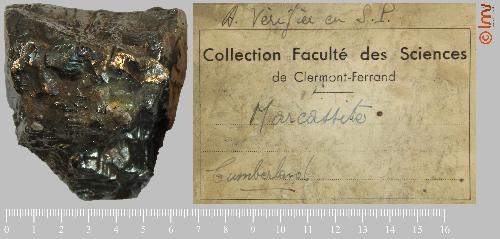 A Vérifier en S.P.
Collection Faculté des Sciences
de Clermont-Ferrand
Marcassite
Cumberland
© lmv
0 1 2 3 4 5 6 7 8 9 10 11 12 13 14 15 16